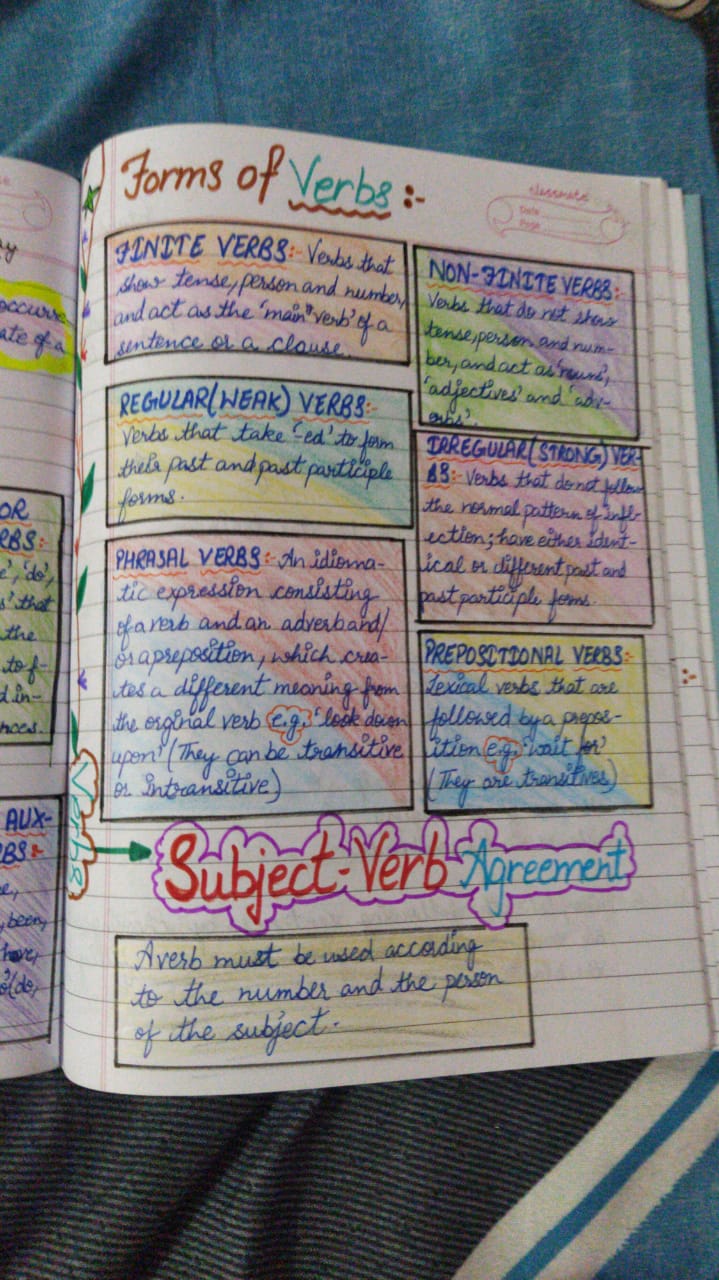 Forms of Verbs :-
classmate
Date
Page
FINITE VERBS:- Verbs that
show tense, person and number,
and act as the 'main" verb' of a
sentence or a clause.
NON-FINITE VERBS:-
Verbs that do not show
tense, person and num-
ber, and act as 'nouns',
'adjectives' and 'adv-
erbs'.
REGULAR(WEAK) VERBS:-
Verbs that take '-ed' to form
their past and past participle
forms.
IRREGULAR(STRONG) VER-
BS:- Verbs that do not follow
the normal pattern of infl-
ection; have either ident-
ical or different past and
past participle forms.
PHRASAL VERBS:- An idioma-
tic expression consisting
of a verb and an adverb and/
or a preposition, which crea-
tes a different meaning from
the orginal verb e.g. 'look down
upon' (They can be transitive
or intransitive)
PREPOSITIONAL VERBS:-
Lexical verbs that are
followed by a prepos-
ition e.g. 'wait for'
(They are transitives)
Verbs
Subject-Verb Agreement
A verb must be used according
to the number and the person
of the subject.
occurre
ate of a
OR
RBS:
'do',
that
the
to f-
d in-
nces.
AUX-
RBS:-
been,
have,